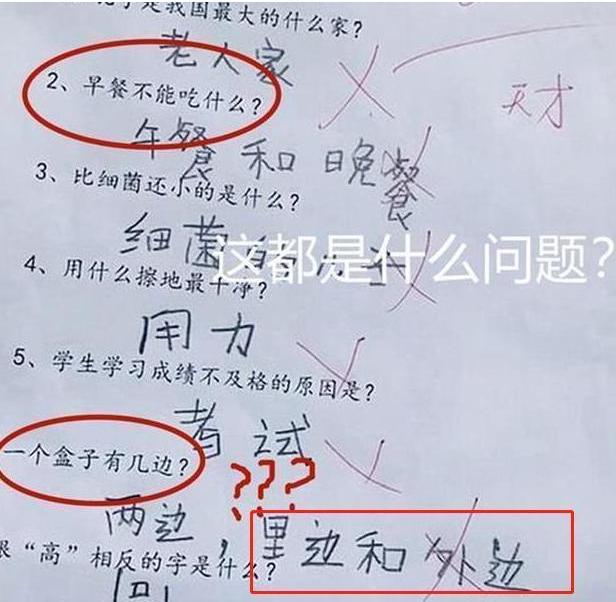 是我国最大的什么家?
老人家
天才
2、早餐不能吃什么?
午餐和晚餐
3、比细菌还小的是什么?
细菌的儿子
这都是什么问题?
4、用什么擦地最干净?
用力
5、学生学习成绩不及格的原因是?
考试
一个盒子有几边?
???
两边,里边和外边
跟“高”相反的字是什么?